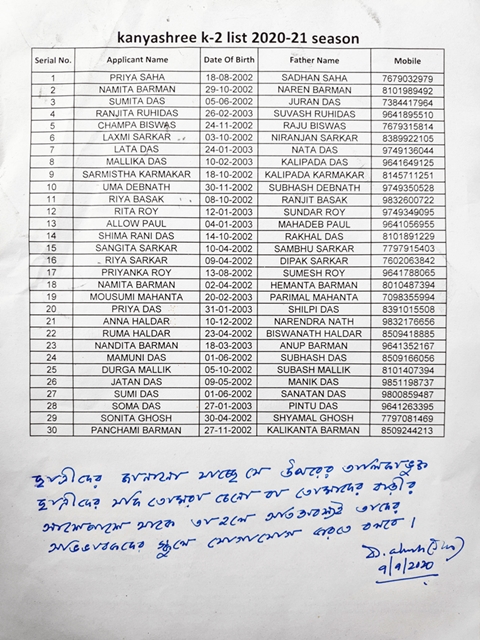 kanyashree k-2 list 2020-21 season
Serial No. Applicant Name Date Of Birth Father Name Mobile
1 PRIYA SAHA 18-08-2002 SADHAN SAHA 7679032979
2 NAMITA BARMAN 29-10-2002 NAREN BARMAN 8101989492
3 SUMITA DAS 05-06-2002 JURAN DAS 7384417964
4 RANJITA RUHIDAS 26-02-2003 SUVASH RUHIDAS 9641895510
5 CHAMPA BISWAS 24-11-2002 RAJU BISWAS 7679315814
6 LAXMI SARKAR 03-10-2002 NIRANJAN SARKAR 8389922105
7 LATA DAS 24-01-2003 NATA DAS 9749136044
8 MALLIKA DAS 10-02-2003 KALIPADA DAS 9641649125
9 SARMISTHA KARMAKAR 18-10-2002 KALIPADA KARMAKAR 8145711251
10 UMA DEBNATH 30-11-2002 SUBHASH DEBNATH 9749350528
11 RIYA BASAK 08-10-2002 RANJIT BASAK 9832600722
12 RITA ROY 12-01-2003 SUNDAR ROY 9749349095
13 ALLOW PAUL 04-01-2003 MAHADEB PAUL 9641056955
14 SHIMA RANI DAS 14-10-2002 RAKHAL DAS 8101891229
15 SANGITA SARKAR 10-04-2002 SAMBHU SARKAR 7797915403
16 RIYA SARKAR 09-04-2002 DIPAK SARKAR 7602063842
17 PRIYANKA ROY 13-08-2002 SUMESH ROY 9641788065
18 NAMITA BARMAN 02-04-2002 HEMANTA BARMAN 8010487394
19 MOUSUMI MAHANTA 20-02-2003 PARIMAL MAHANTA 7098355994
20 PRIYA DAS 31-01-2003 SHILPI DAS 8391015508
21 ANNA HALDAR 10-12-2002 NARENDRA NATH 9832176656
22 RUMA HALDAR 23-04-2002 BISWANATH HALDAR 8509418885
23 NANDITA BARMAN 18-03-2003 ANUP BARMAN 9641352167
24 MAMUNI DAS 01-06-2002 SUBHASH DAS 8509166056
25 DURGA MALLIK 05-10-2002 SUBASH MALLIK 8101407394
26 JATAN DAS 09-05-2002 MANIK DAS 9851198737
27 SUMI DAS 01-06-2002 SANATAN DAS 9800859487
28 SOMA DAS 27-01-2003 PINTU DAS 9641263395
29 SONITA GHOSH 30-04-2002 SHYAMAL GHOSH 7797081469
30 PANCHAMI BARMAN 27-11-2002 KALIKANTA BARMAN 8509244213
ছাত্রীদের জানানো যাচ্ছে যে উপরের তালিকাভুক্ত
ছাত্রীদের যদি তোমরা চেনো বা তোমাদের বাড়ীর
আশেপাশে থাকে তাহলে অতি অবশ্যই তাদের
অভিভাবকদের স্কুলে যোগাযোগ করতে বলবে।
9/9/2020